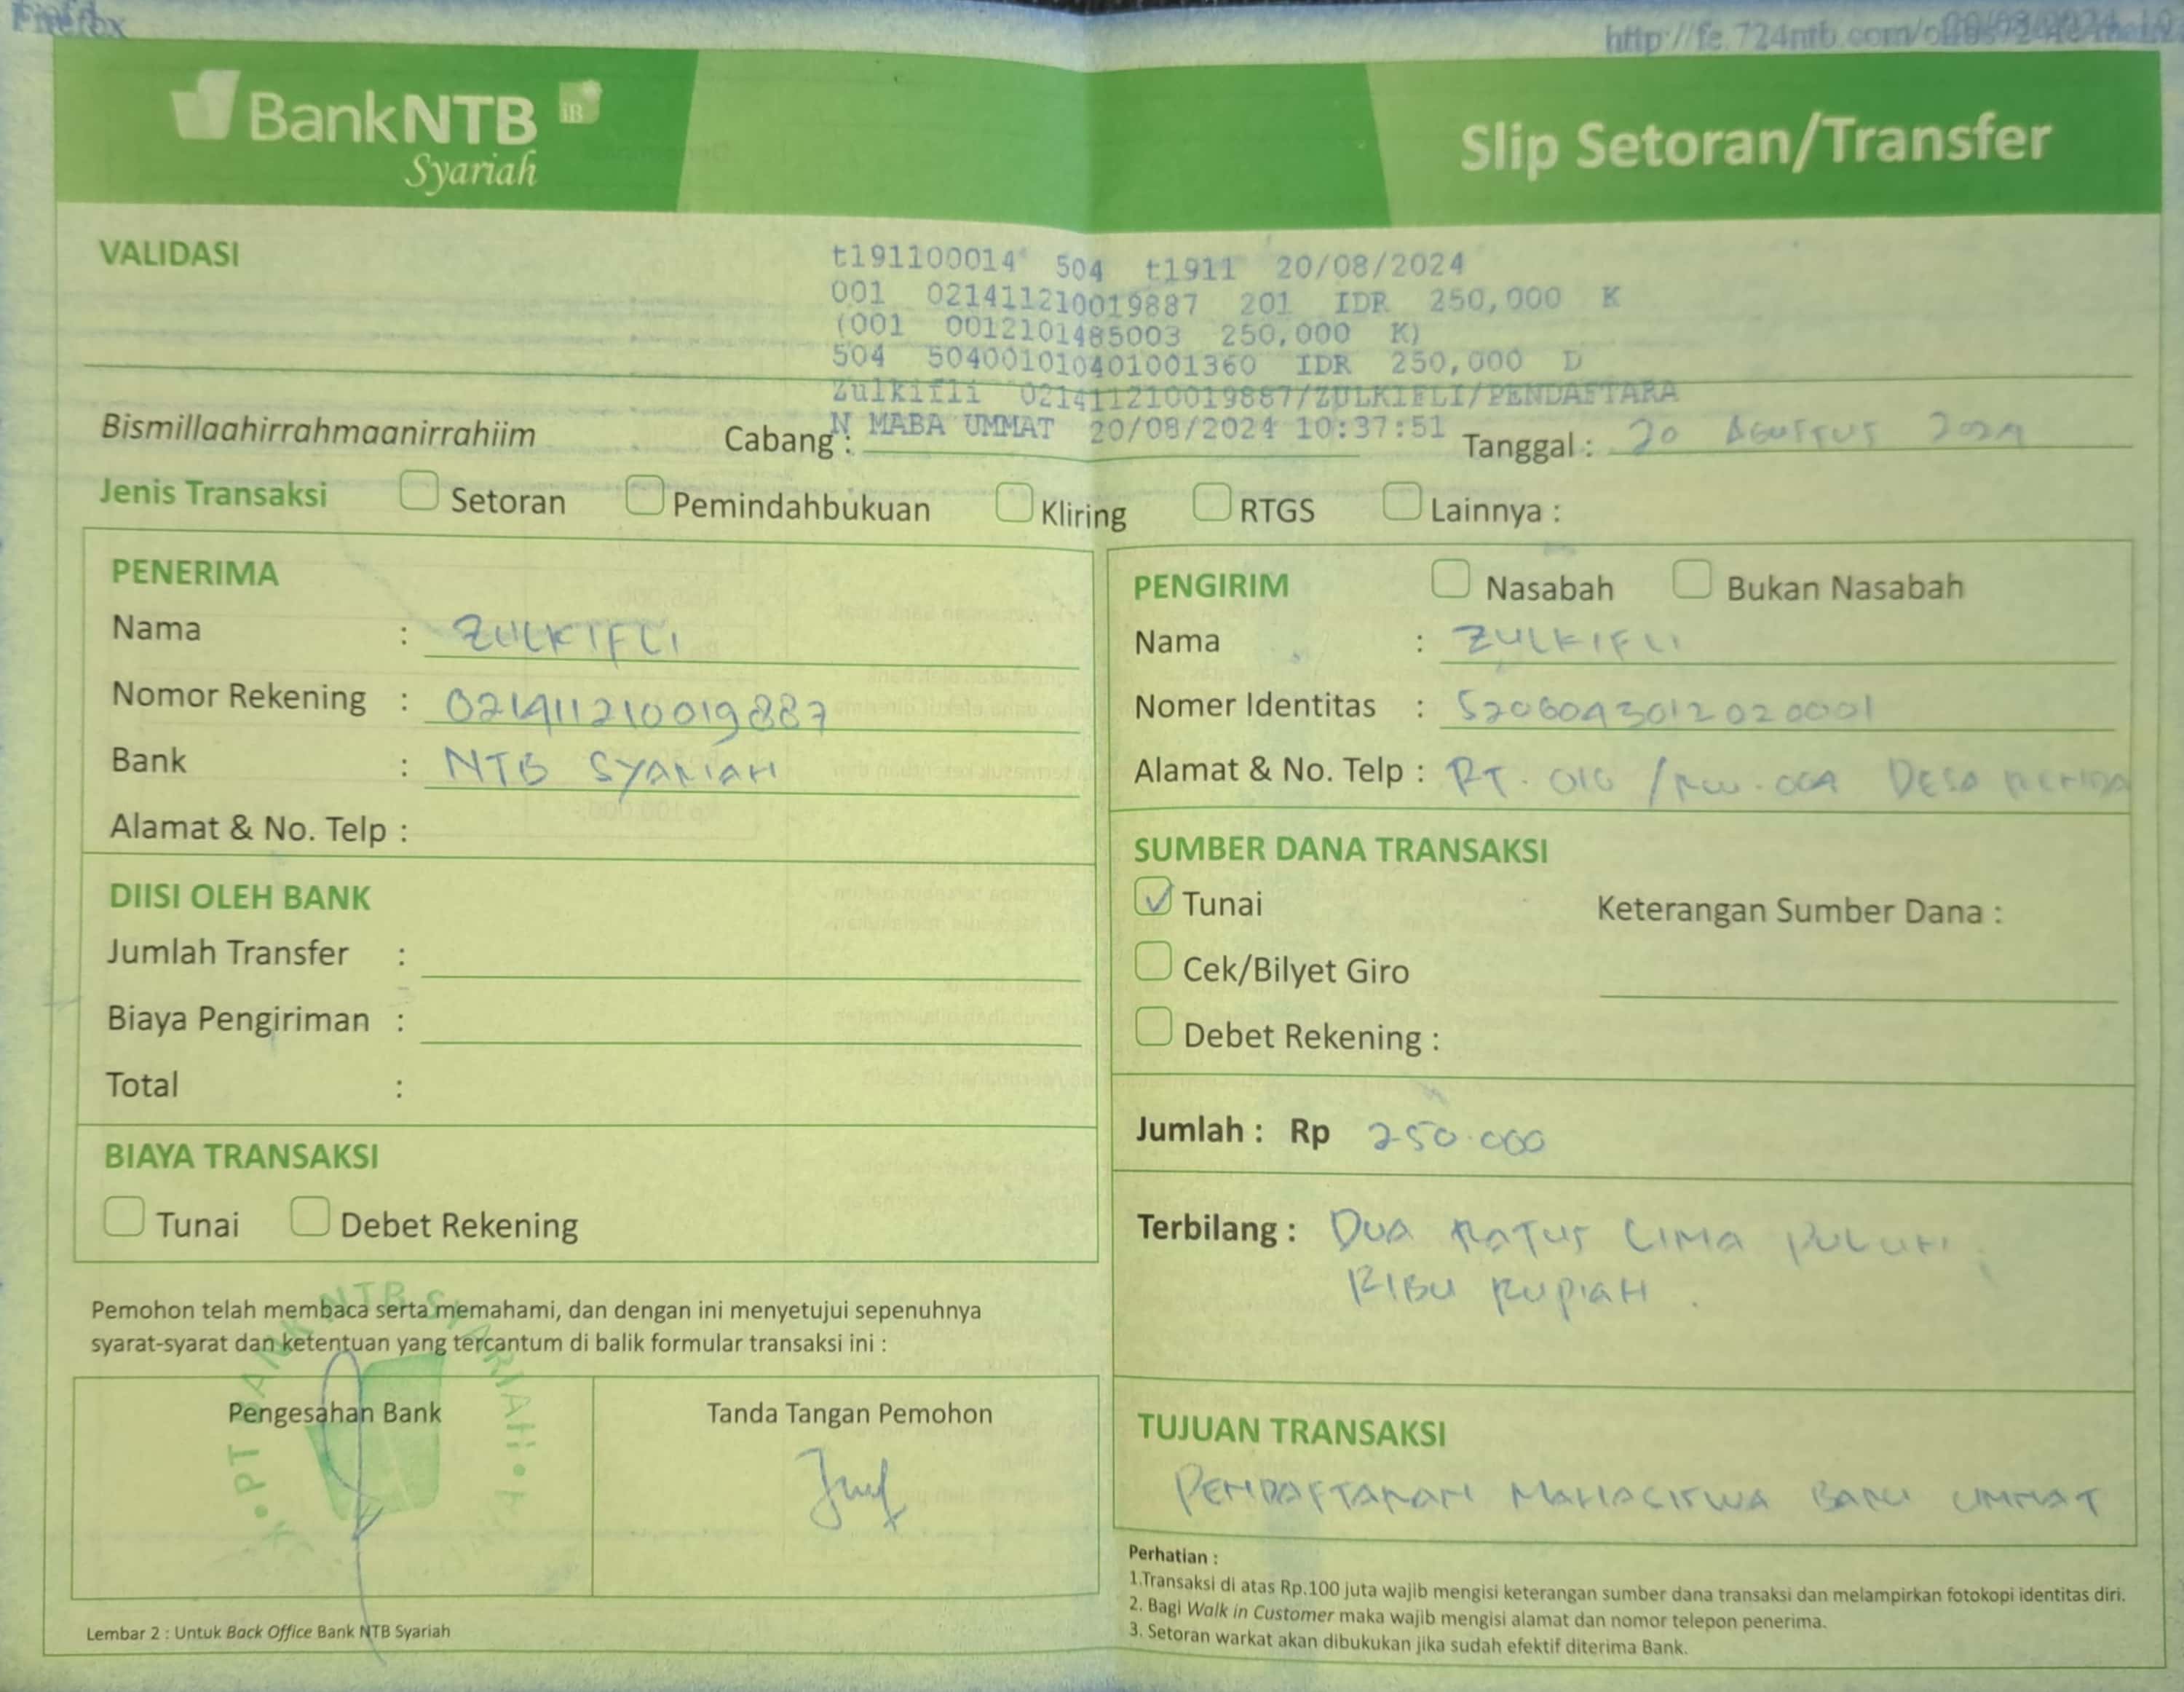 Firefox
http://fe.724ntb.com/
BankNTB iB
Syariah
Slip Setoran/Transfer
VALIDASI
t191100014 504 t1911 20/08/2024
001 021411210019887 201 IDR 250,000 K
(001 0012101485003 250,000 K)
504 504001010401001360 IDR 250,000 D
Zulkifli 021411210019887/ZULKIFLI/PENDAFTARA
N MABA UMMAT 20/08/2024 10:37:51
Bismillaahirrahmaanirrahiim Cabang : Tanggal : 20 AGUSTUS 2024
Jenis Transaksi Setoran Pemindahbukuan Kliring RTGS Lainnya :
PENERIMA
Nama : ZULKIFLI
Nomor Rekening : 021411210019887
Bank : NTB SYARIAH
Alamat & No. Telp :
DIISI OLEH BANK
Jumlah Transfer :
Biaya Pengiriman :
Total :
BIAYA TRANSAKSI
Tunai Debet Rekening
PENGIRIM Nasabah Bukan Nasabah
Nama : ZULKIFLI
Nomer Identitas : 5206093012020001
Alamat & No. Telp : RT. 010 /RW. 004 DESA
SUMBER DANA TRANSAKSI
Tunai Keterangan Sumber Dana :
Cek/Bilyet Giro
Debet Rekening :
Jumlah : Rp 250.000
Terbilang : DUA RATUS LIMA PULUH
RIBU RUPIAH.
Pemohon telah membaca serta memahami, dan dengan ini menyetujui sepenuhnya
syarat-syarat dan ketentuan yang tercantum di balik formular transaksi ini :
PT BANK NTB SYARIAH
Pengesahan Bank Tanda Tangan Pemohon
TUJUAN TRANSAKSI
PENDAFTARAN MAHASISWA BARU UMMAT
Lembar 2 : Untuk Back Office Bank NTB Syariah
Perhatian :
1.Transaksi di atas Rp.100 juta wajib mengisi keterangan sumber dana transaksi dan melampirkan fotokopi identitas diri.
2. Bagi Walk in Customer maka wajib mengisi alamat dan nomor telepon penerima.
3. Setoran warkat akan dibukukan jika sudah efektif diterima Bank.